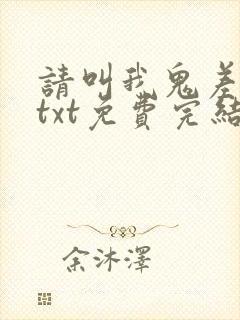 請叫我鬼差
txt免費完結
余沐澤